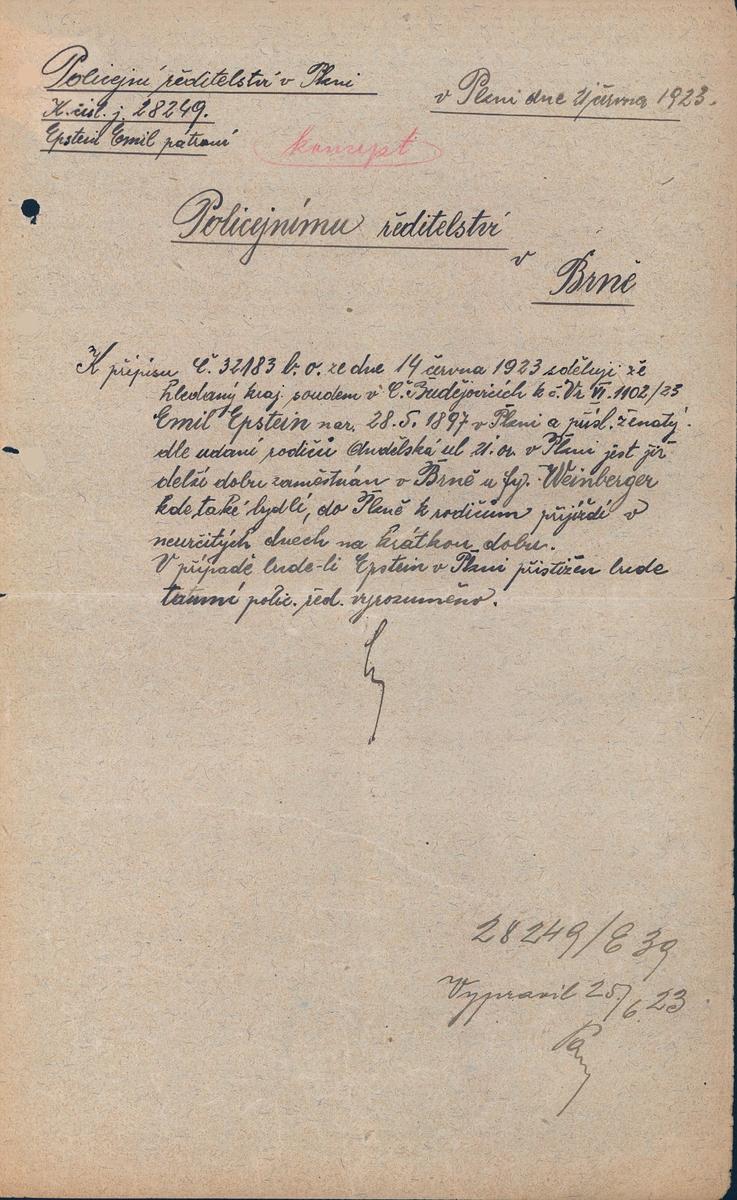 Policejní ředitelství v Plzni
K. čísl. j. 28249.
Epstein Emil pátrání
v Plzni dne 21 června 1923.
koncept
Policejnímu ředitelství
v
Brně
K přípisu Č. 32183 b. o. ze dne 14 června 1923 sděluji že
hledaný kraj. soudem v Č. Budějovicích k č. Vr VI. 1102/23
Emil Epstein nar. 28.5. 1897 v Plzni a přísl. ženatý.
dle udání rodičů Andělská ul 21. or. v Plzni jest již
delší dobu zaměstnán v Brně u fy. Weinberger
kde také bydlí, do Plzně k rodičům přijíždí v
neurčitých dnech na krátkou dobu.
V případě bude-li Epstein v Plzni přistižen bude
tamní polic. řed. vyrozuměno.
28249/E 39
Vypravil 25/6 23